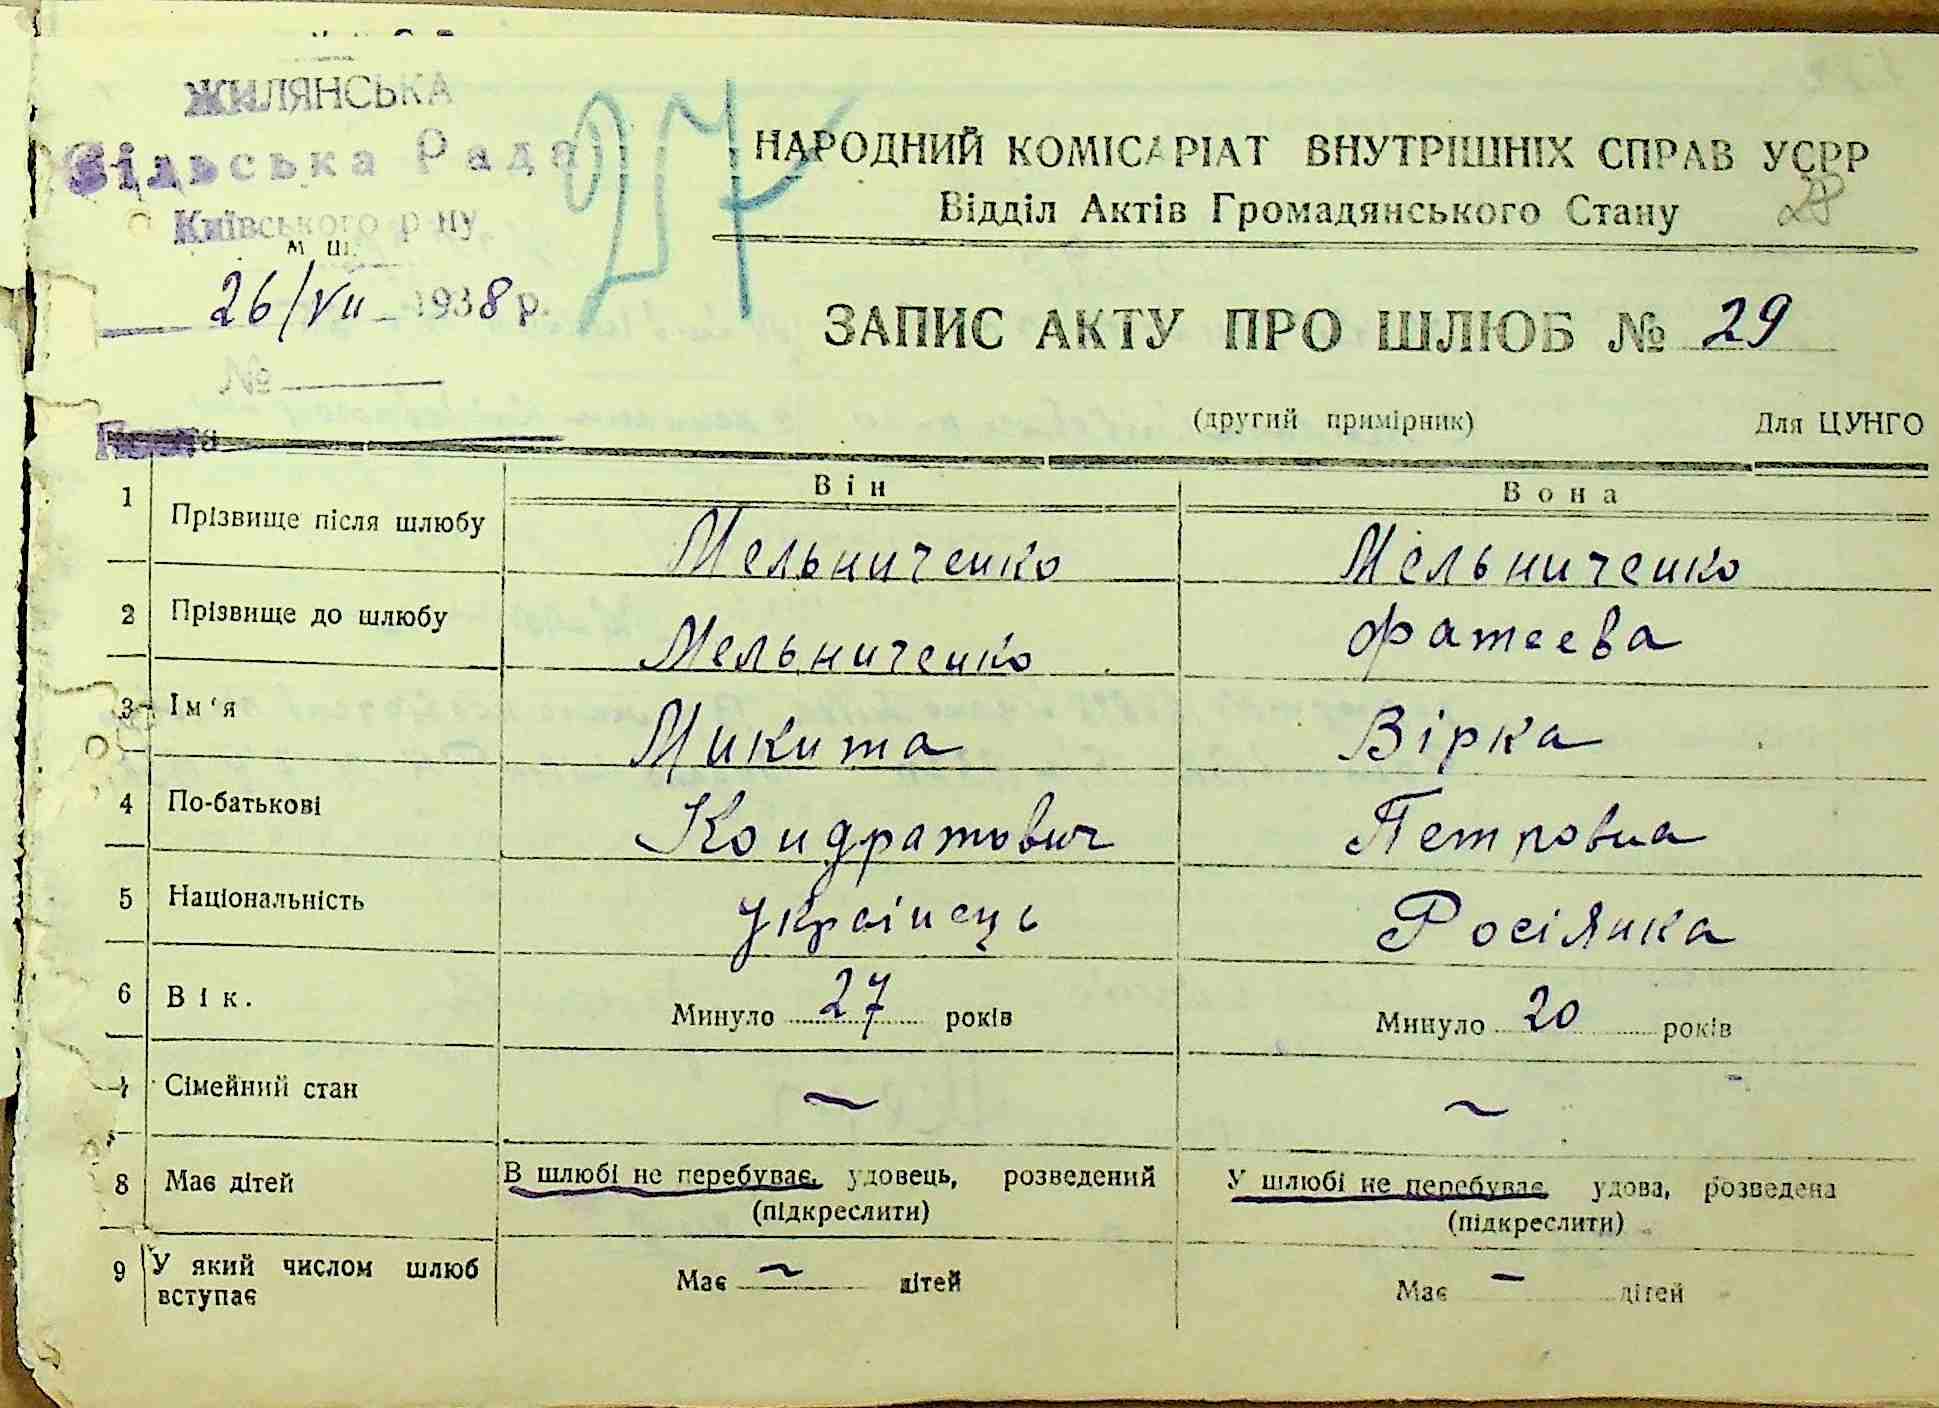 ЖИЛЯНСЬКА
Сільська Рада
Київського р-ну
м. ш.
26/VII 1938 р.
№
27
НАРОДНИЙ КОМІСАРІАТ ВНУТРІШНІХ СПРАВ УСРР
Відділ Актів Громадянського Стану
28
ЗАПИС АКТУ ПРО ШЛЮБ № 29
(другий примірник) Для ЦУНГО
Він Вона
1 Прізвище після шлюбу Мельниченко Мельниченко
2 Прізвище до шлюбу Мельниченко Фатеева
3 Ім'я Микита Вірка
4 По-батькові Кондратович Петровна
5 Національність Українець Росіянка
6 Вік. Минуло 27 років Минуло 20 років
7 Сімейний стан ~ ~
8 Має дітей В шлюбі не перебуває, удовець, розведений У шлюбі не перебуває, удова, розведена
(підкреслити) (підкреслити)
9 У який числом шлюб Має ~ дітей Має – дітей
вступає